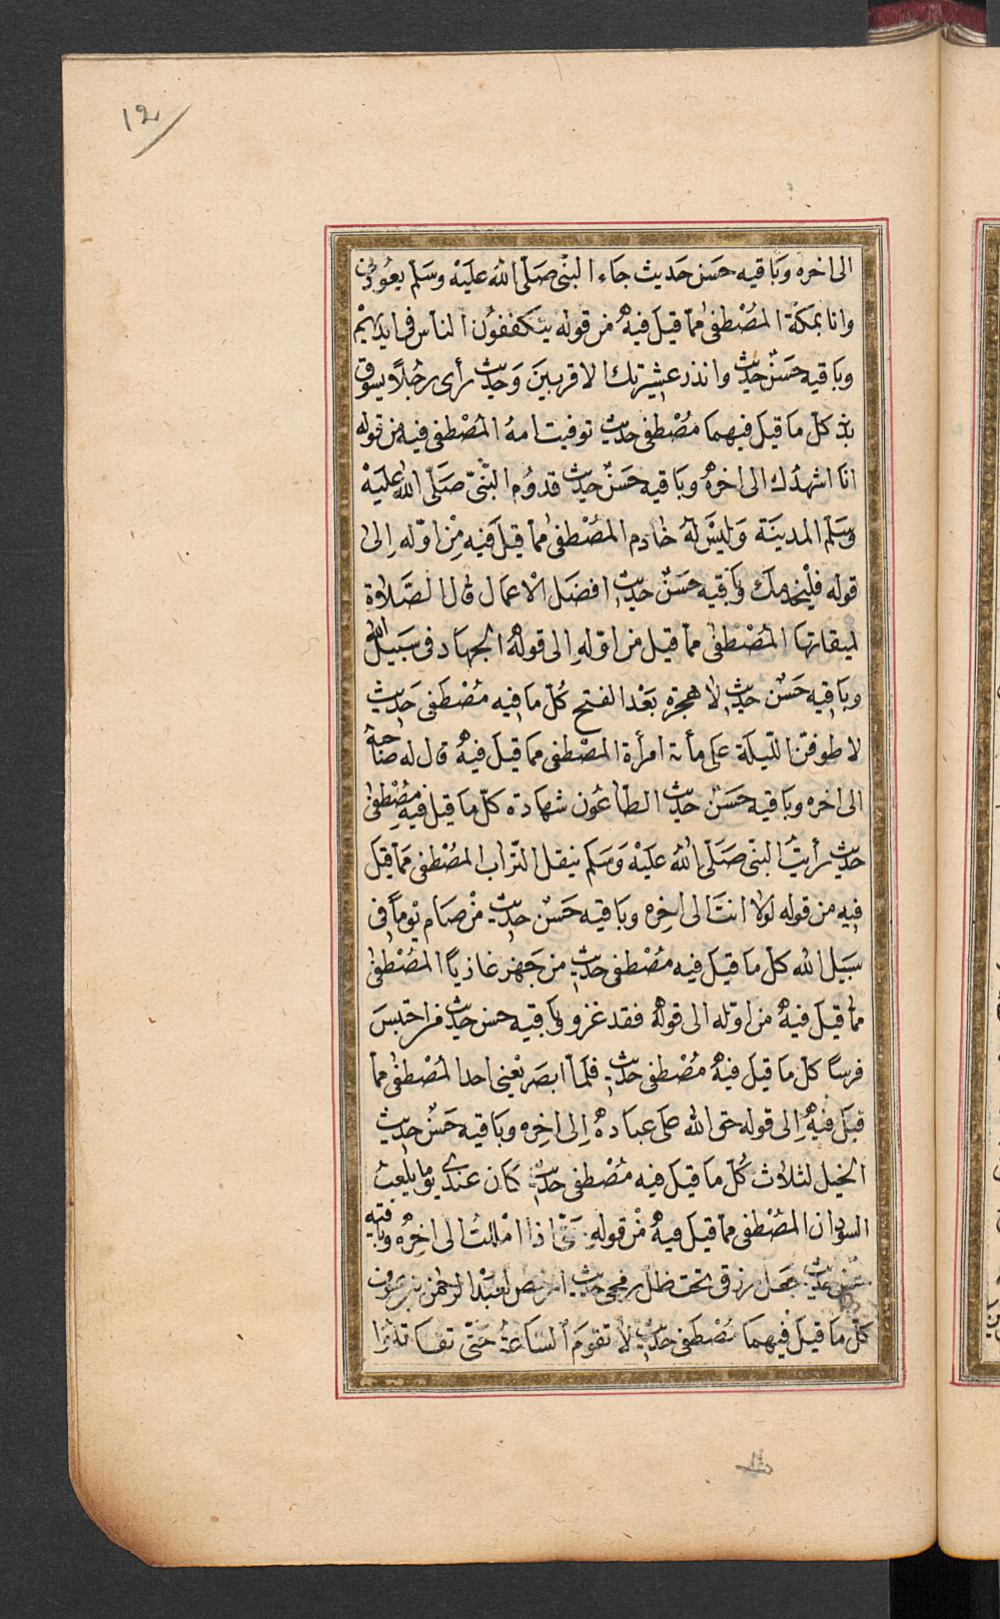 12
الى اخره وباقيه حسن حديث جاء النبى صلى الله عليه وسلم يعودنى
وانا بمكة المصطفى مما قيل فيه من قوله يتكففون الناس فى ايديهم
وباقيه حسن حديث وانذر عشيرتك الاقربين وحديث رأى رجلا يسوق
بدنة كل ما قيل فيهما مصطفى حديث توفيت امه المصطفى فيه من قوله
انا اشهدك الى اخره وباقيه حسن حديث قدوم النبى صلى الله عليه
وسلم المدينة وليس له خادم المصطفى مما قيل فيه من اوله الى
قوله فليخدمك وباقيه حسن حديث افضل الاعمال قال الصلاة
لميقاتها المصطفى مما قيل من اوله الى قوله الجهاد فى سبيل الله
وباقيه حسن حديث لا هجرة بعد الفتح كل ما فيه مصطفى حديث
لاطوفن الليلة على مأية امرأة المصطفى مما قيل فيه قال له صاحبه
الى اخره وباقيه حسن حديث الطاعون شهادة كل ما قيل فيه مصطفى
حديث رأيت النبى صلى الله عليه وسلم ينقل التراب المصطفى مما قيل
فيه من قوله لولا انت الى اخره وباقيه حسن حديث من صام يوما فى
سبيل الله كل ما قيل فيه مصطفى حديث من جهز غازيا المصطفى
مما قيل فيه من اوله الى قوله فقد غزو وباقيه حسن حديث من احتبس
فرسا كل ما قيل فيه مصطفى حديث فلما ابصر يعنى احدا المصطفى مما
قيل فيه الى قوله حق الله على عباده الى اخره وباقيه حسن حديث
الخيل لثلاث كل ما قيل فيه مصطفى حديث كان عندى يوما يلعب
السودان المصطفى مما قيل فيه من قوله حتى اذا امللت الى اخره وباقيه
حسن حديث جعل رزقى تحت ظل رمحى حديث ارخص لعبد الرحمن بن عوف
كل ما قيل فيهما مصطفى حديث لا تقوم الساعة حتى تقاتلوا